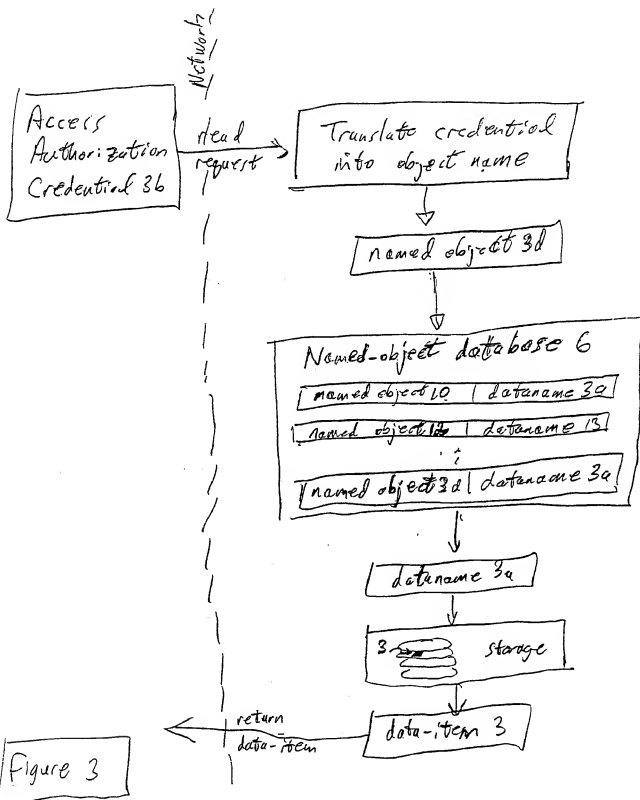 Network
Access
Authorization
Credential 3b
read
request
Translate credential
into object name
named object 3d
Named-object database 6
named object 10 | dataname 3a
named object 12 | dataname 13
named object 3d | dataname 3a
dataname 3a
3
storage
return
data-item
data-item 3
Figure 3